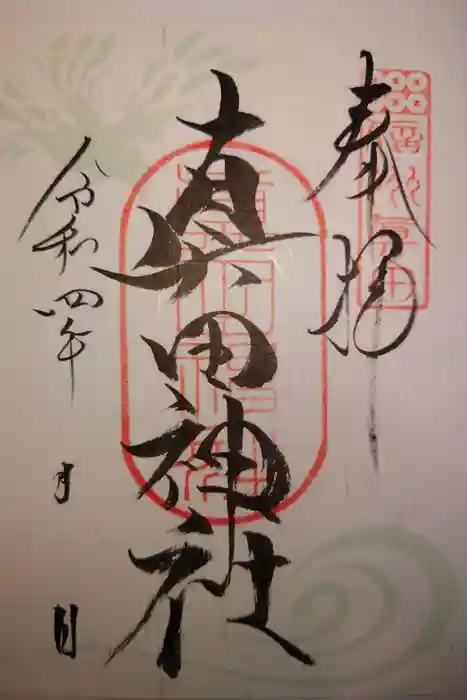 奉拝
真田神社
令和四年
月
日